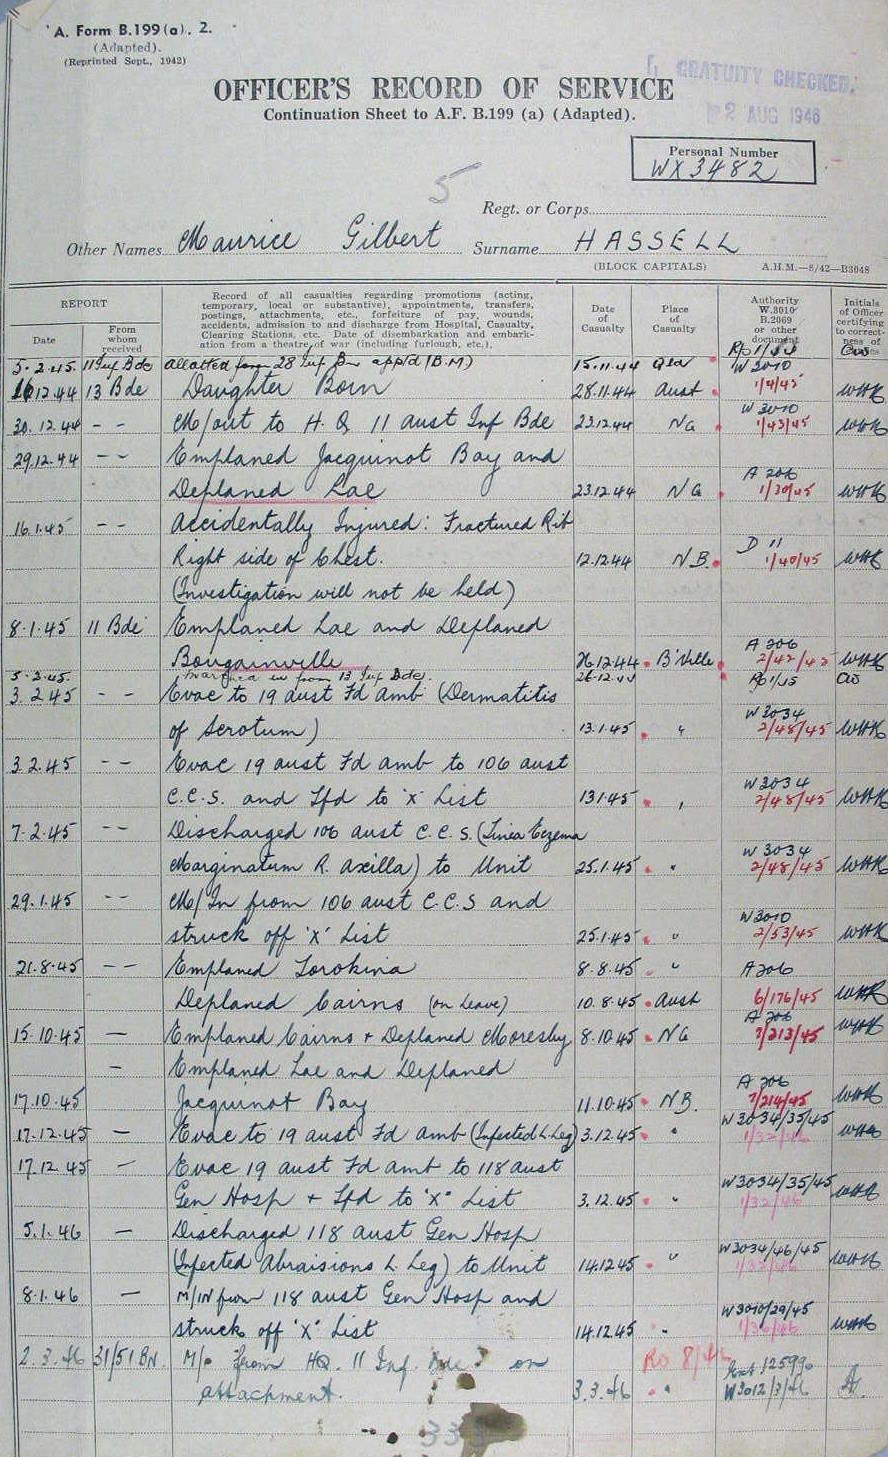 A. Form B.199 (a). 2.
(Adapted).
(Reprinted Sept., 1942)
GRATUITY CHECKED.
2 AUG 1946
OFFICER'S RECORD OF SERVICE
Continuation Sheet to A.F. B.199 (a) (Adapted).
Personal Number
WX3482
5
Regt. or Corps
Other Names Maurice Gilbert Surname HASSELL
(BLOCK CAPITALS) A.H.M.—8/42—B3048
REPORT
Date
From whom received
Record of all casualties regarding promotions (acting,
temporary, local or substantive), appointments, transfers,
postings, attachments, etc., forfeiture of pay, wounds,
accidents, admission to and discharge from Hospital, Casualty,
Clearing Stations, etc. Date of disembarkation and embark-
ation from a theatre of war (including furlough, etc.).
Date of Casualty
Place of Casualty
Authority W.3010 B.2069 or other document
Initials of Officer certifying to correct-ness of
5.2.45. 11 Inf Bde allotted from 28 Inf Bn app'td (B.M) 15.11.44 Qld W3010
16.12.44 13 Bde Daughter Born 28.11.44 Aust 1/4/45 WHK
30.12.44 – – M/out to H.Q 11 Aust Inf Bde 23.12.44 NG W3010 1/43/45 WHK
29.12.44 – – Emplaned Jacquinot Bay and
Deplaned Lae 23.12.44 NG A206 1/30/45 WHK
16.1.45 – – Accidentally Injured: Fractured Rib
Right side of Chest. 12.12.44 N.B. D 11 1/40/45 WHK
(Investigation will not be held)
8.1.45 11 Bde Emplaned Lae and Deplaned
Bougainville 26.12.44 B'Ville A206 2/42/45 WHK
5.2.45. marched in from 13 Inf Bde. 26.12.44 CW
3.2.45 – – Evac to 19 Aust Fd Amb (Dermatitis
of Scrotum) 13.1.45 " W3034 2/48/45 WHK
3.2.45 – – Evac 19 Aust Fd Amb to 106 Aust
C.C.S. and Tfd to 'X' List 13.1.45 " W3034 2/48/45 WHK
7.2.45 – – Discharged 106 Aust C.C.S. (Tinea Eczema
Marginatum R. Axilla) to Unit 25.1.45 " W3034 2/48/45 WHK
29.1.45 – – M/In from 106 Aust C.C.S and
struck off 'X' List 25.1.45 " W3010 2/53/45 WHK
21.8.45 – – Emplaned Torokina 8.8.45 " A206
Deplaned Cairns (on Leave) 10.8.45 Aust 6/176/45 WHK
15.10.45 – Emplaned Cairns + Deplaned Moresby 8.10.45 NG A206 7/213/45 WHK
– Emplaned Lae and Deplaned
17.10.45 Jacquinot Bay 11.10.45 NB. A206 7/214/45 WHK
17.12.45 – Evac to 19 Aust Fd Amb (Infected L. Leg) 3.12.45 " W3034/35/45 1/32/46 WHK
17.12.45 – Evac 19 Aust Fd Amb to 118 Aust
Gen Hosp + Tfd to "X" List 3.12.45 " W3034/35/45 1/32/46 WHK
5.1.46 – Discharged 118 Aust Gen Hosp
(Infected Abraisions L. Leg) to Unit 14.12.45 " W3034/46/45 1/32/46 WHK
8.1.46 – M/IN from 118 Aust Gen Hosp and
struck off 'X' List 14.12.45 " W3010/29/45 1/36/46 WHK
2.3.46 31/51 BN. M/o from HQ. 11 Inf Bde on Ro 8/46
attachment. 3.3.46 " W3012/3/46